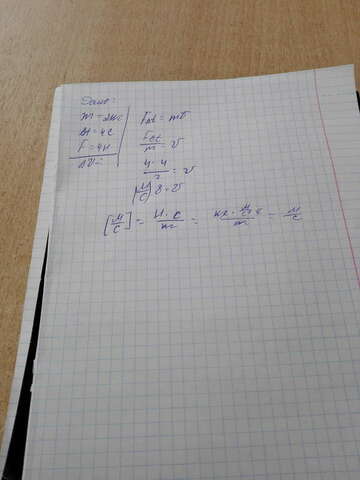 Дано:
m = 2кг
Δt = 4с
F = 4Н
ΔV -
Ft = mV
Ft/m = V
4·4/2 = V
(м/с) 8 = V
[м/с] = Н·с/m = кг·м/с²·с/m = м/с